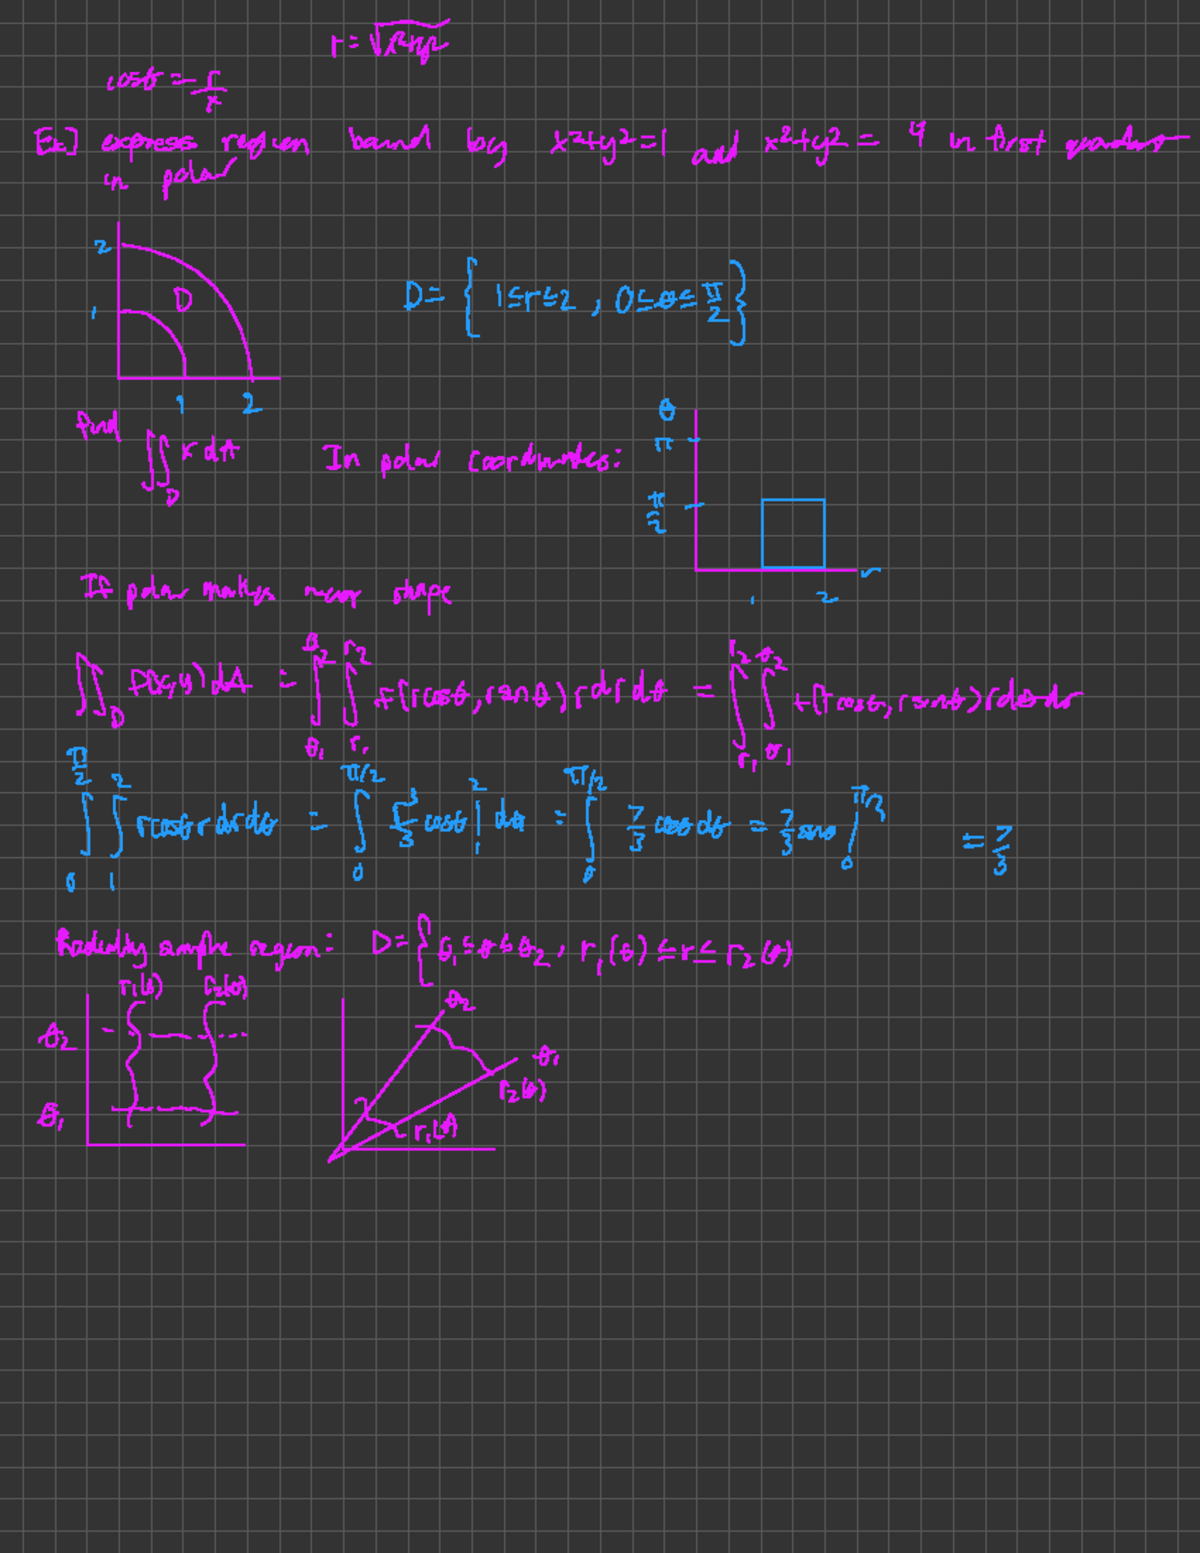 r = √x²+y²
cosθ = r/x
Ex] express region bound by x²+y²=1 and x²+y²= 4 in first quadrant
in polar
2
D
1
D= { 1≤r≤2 , 0≤θ≤π/2 }
1 2
find
∬_D x dA
In polar coordinates:
θ
π
π/2
r
1 2
If polar makes shape
∬_D f(x,y) dA = ∫_θ₁^θ₂ ∫_r₁^r₂ f(rcosθ, rsinθ) r dr dθ = ∫_r₁^r₂ ∫_θ₁^θ₂ f(rcosθ, rsinθ) r dθ dr
∫_0^π/2 ∫_1^2 rcosθ r dr dθ = ∫_0^π/2 r³/3 cosθ |_1^2 dθ = ∫_0^π/2 7/3 cosθ dθ = 7/3 sinθ |_0^π/2 = 7/3
Radially simple region: D= { θ₁≤θ≤θ₂, r₁(θ) ≤ r ≤ r₂(θ)
r₁(θ) r₂(θ)
θ₂
θ₁
θ₂
θ₁
r₂(θ)
r₁(θ)